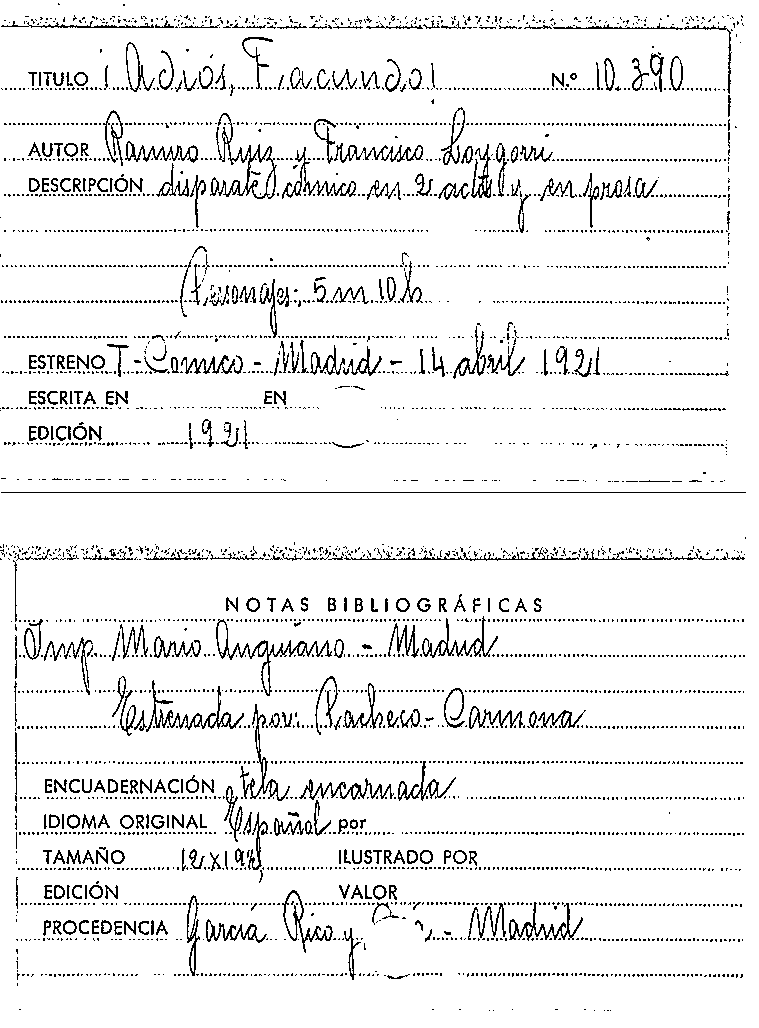 TITULO ¡Adiós, Facundo! N.º 10.390
AUTOR Ramiro Ruiz y Francisco Loygorri
DESCRIPCIÓN disparate cómico en 2 actos y en prosa
Personajes: 5 m 10 h
ESTRENO T-Cómico - Madrid - 14 abril 1921
ESCRITA EN EN
EDICIÓN 1921
NOTAS BIBLIOGRÁFICAS
Imp Mario Anguiano - Madrid
Estrenada por: Pacheco - Carmona
ENCUADERNACIÓN tela encarnada
IDIOMA ORIGINAL Español por
TAMAÑO 12x19 ILUSTRADO POR
EDICIÓN VALOR
PROCEDENCIA García Rico y - Madrid